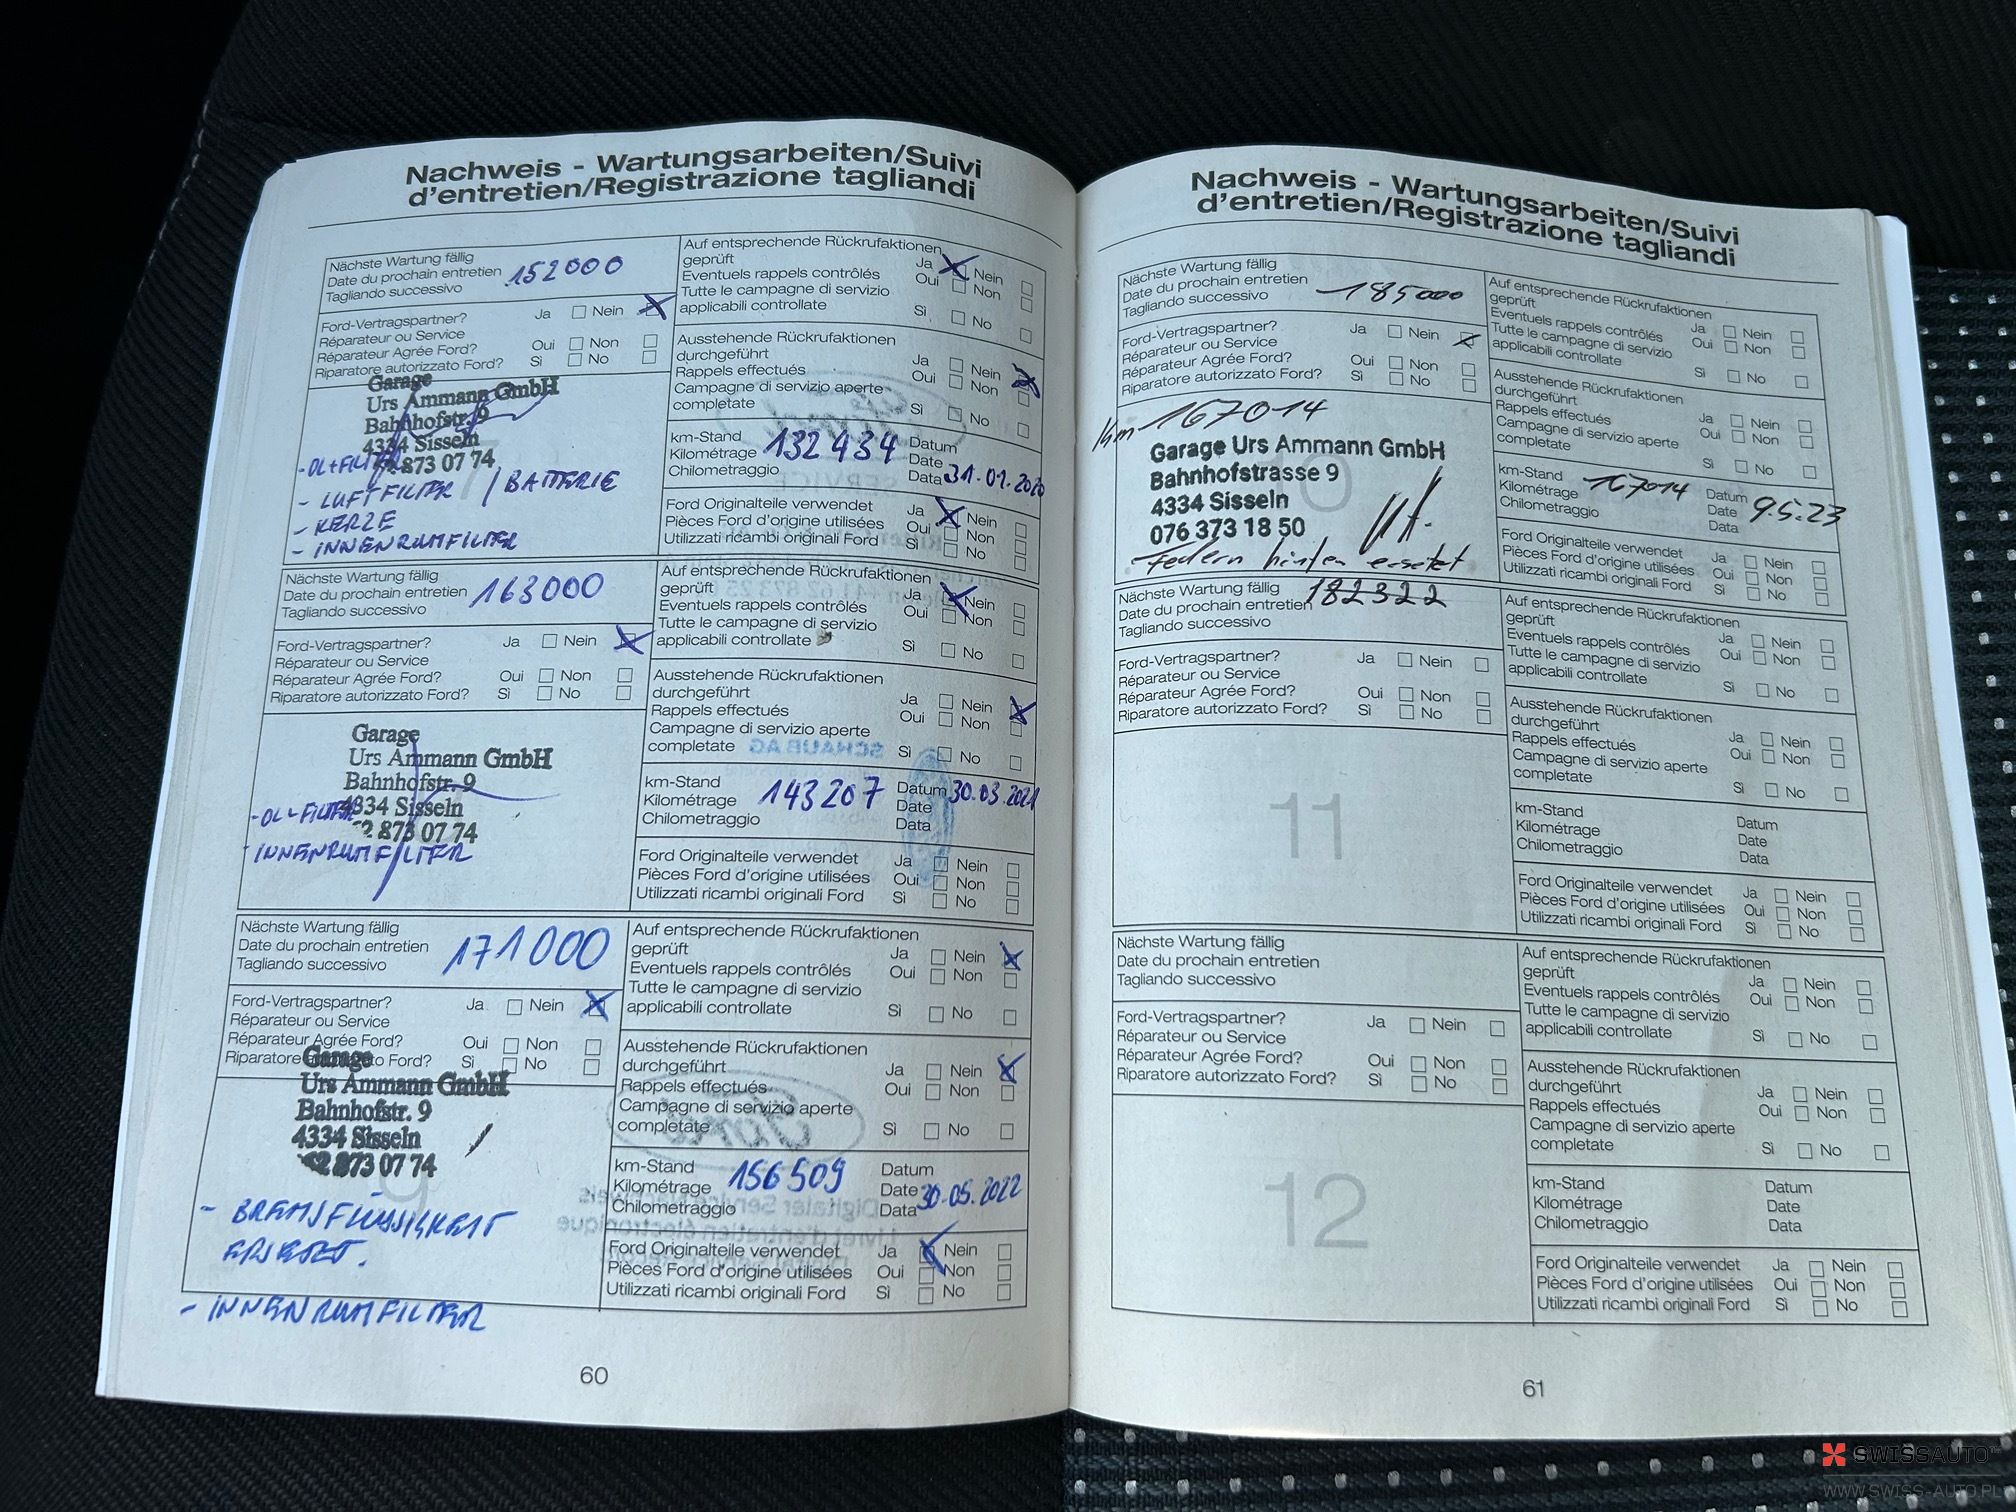 Nachweis - Wartungsarbeiten/Suivi
d'entretien/Registrazione tagliandi
Nächste Wartung fällig
Date du prochain entretien 152000
Tagliando successivo
Ford-Vertragspartner? Ja Nein
Réparateur ou Service
Réparateur Agrée Ford? Oui Non
Riparatore autorizzato Ford? Sì No
Garage
Urs Ammann GmbH
Bahnhofstr. 9
4334 Sisseln
873 07 74
- OL+FILTER
- LUFTFILTER / BATTERIE
- KERZE
- INNENRUMFILTER
Auf entsprechende Rückrufaktionen
geprüft Ja Nein
Eventuels rappels contrôlés Oui Non
Tutte le campagne di servizio
applicabili controllate Sì No
Ausstehende Rückrufaktionen
durchgeführt Ja Nein
Rappels effectués Oui Non
Campagne di servizio aperte
completate Sì No
km-Stand Datum
Kilométrage 132434 Date
Chilometraggio Data 31.01.2020
Ford Originalteile verwendet Ja Nein
Pièces Ford d'origine utilisées Oui Non
Utilizzati ricambi originali Ford Sì No
Nächste Wartung fällig
Date du prochain entretien 163000
Tagliando successivo
Ford-Vertragspartner? Ja Nein
Réparateur ou Service
Réparateur Agrée Ford? Oui Non
Riparatore autorizzato Ford? Sì No
Garage
Urs Ammann GmbH
Bahnhofstr. 9
4334 Sisseln
873 07 74
- OL+FILTER
- INNENRUMFILTER
Auf entsprechende Rückrufaktionen
geprüft Ja Nein
Eventuels rappels contrôlés Oui Non
Tutte le campagne di servizio
applicabili controllate Sì No
Ausstehende Rückrufaktionen
durchgeführt Ja Nein
Rappels effectués Oui Non
Campagne di servizio aperte
completate Sì No
km-Stand Datum 30.03.2021
Kilométrage 143207 Date
Chilometraggio Data
Ford Originalteile verwendet Ja Nein
Pièces Ford d'origine utilisées Oui Non
Utilizzati ricambi originali Ford Sì No
Nächste Wartung fällig
Date du prochain entretien 171000
Tagliando successivo
Ford-Vertragspartner? Ja Nein
Réparateur ou Service
Réparateur Agrée Ford? Oui Non
Riparatore autorizzato Ford? Sì No
Garage
Urs Ammann GmbH
Bahnhofstr. 9
4334 Sisseln
873 07 74
9
- BREMSFLÜSSIGKEIT
ERSETZT.
- INNENRUMFILTER
Auf entsprechende Rückrufaktionen
geprüft Ja Nein
Eventuels rappels contrôlés Oui Non
Tutte le campagne di servizio
applicabili controllate Sì No
Ausstehende Rückrufaktionen
durchgeführt Ja Nein
Rappels effectués Oui Non
Campagne di servizio aperte
completate Sì No
km-Stand Datum
Kilométrage 156509 Date 30.05.2022
Chilometraggio Data
Ford Originalteile verwendet Ja Nein
Pièces Ford d'origine utilisées Oui Non
Utilizzati ricambi originali Ford Sì No
60
Nachweis - Wartungsarbeiten/Suivi
d'entretien/Registrazione tagliandi
Nächste Wartung fällig
Date du prochain entretien 185000
Tagliando successivo
Ford-Vertragspartner? Ja Nein
Réparateur ou Service
Réparateur Agrée Ford? Oui Non
Riparatore autorizzato Ford? Sì No
Km 167014
Garage Urs Ammann GmbH
Bahnhofstrasse 9
4334 Sisseln
076 373 18 50
Federn hinten ersetzt
Auf entsprechende Rückrufaktionen
geprüft
Eventuels rappels contrôlés Ja Nein
Tutte le campagne di servizio Oui Non
applicabili controllate Sì No
Ausstehende Rückrufaktionen
durchgeführt
Rappels effectués Ja Nein
Campagne di servizio aperte Oui Non
completate Sì No
km-Stand 167014 Datum
Kilométrage Date 9.5.23
Chilometraggio Data
Ford Originalteile verwendet Ja Nein
Pièces Ford d'origine utilisées Oui Non
Utilizzati ricambi originali Ford Sì No
Nächste Wartung fällig
Date du prochain entretien 182322
Tagliando successivo
Ford-Vertragspartner? Ja Nein
Réparateur ou Service
Réparateur Agrée Ford? Oui Non
Riparatore autorizzato Ford? Sì No
11
Auf entsprechende Rückrufaktionen
geprüft
Eventuels rappels contrôlés Ja Nein
Tutte le campagne di servizio Oui Non
applicabili controllate Sì No
Ausstehende Rückrufaktionen
durchgeführt
Rappels effectués Ja Nein
Campagne di servizio aperte Oui Non
completate Sì No
km-Stand Datum
Kilométrage Date
Chilometraggio Data
Ford Originalteile verwendet Ja Nein
Pièces Ford d'origine utilisées Oui Non
Utilizzati ricambi originali Ford Sì No
Nächste Wartung fällig
Date du prochain entretien
Tagliando successivo
Ford-Vertragspartner? Ja Nein
Réparateur ou Service
Réparateur Agrée Ford? Oui Non
Riparatore autorizzato Ford? Sì No
12
Auf entsprechende Rückrufaktionen
geprüft Ja Nein
Eventuels rappels contrôlés Oui Non
Tutte le campagne di servizio
applicabili controllate Sì No
Ausstehende Rückrufaktionen
durchgeführt Ja Nein
Rappels effectués Oui Non
Campagne di servizio aperte
completate Sì No
km-Stand Datum
Kilométrage Date
Chilometraggio Data
Ford Originalteile verwendet Ja Nein
Pièces Ford d'origine utilisées Oui Non
Utilizzati ricambi originali Ford Sì No
61
SWISSAUTO
WWW.SWISS-AUTO.PL